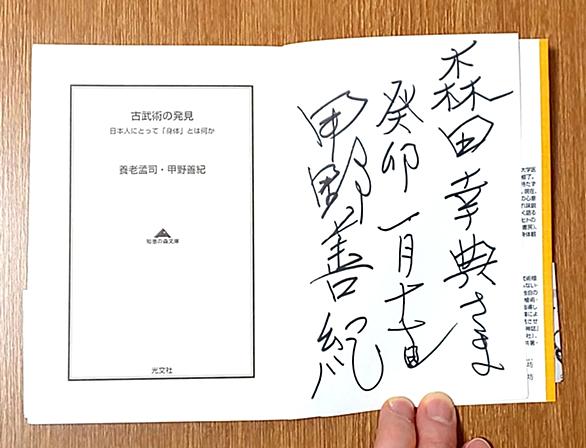 古武術の発見
日本人にとって「身体」とは何か
養老孟司・甲野善紀
知恵の森文庫
光文社
森田幸典さま
癸卯一月十
甲野善紀